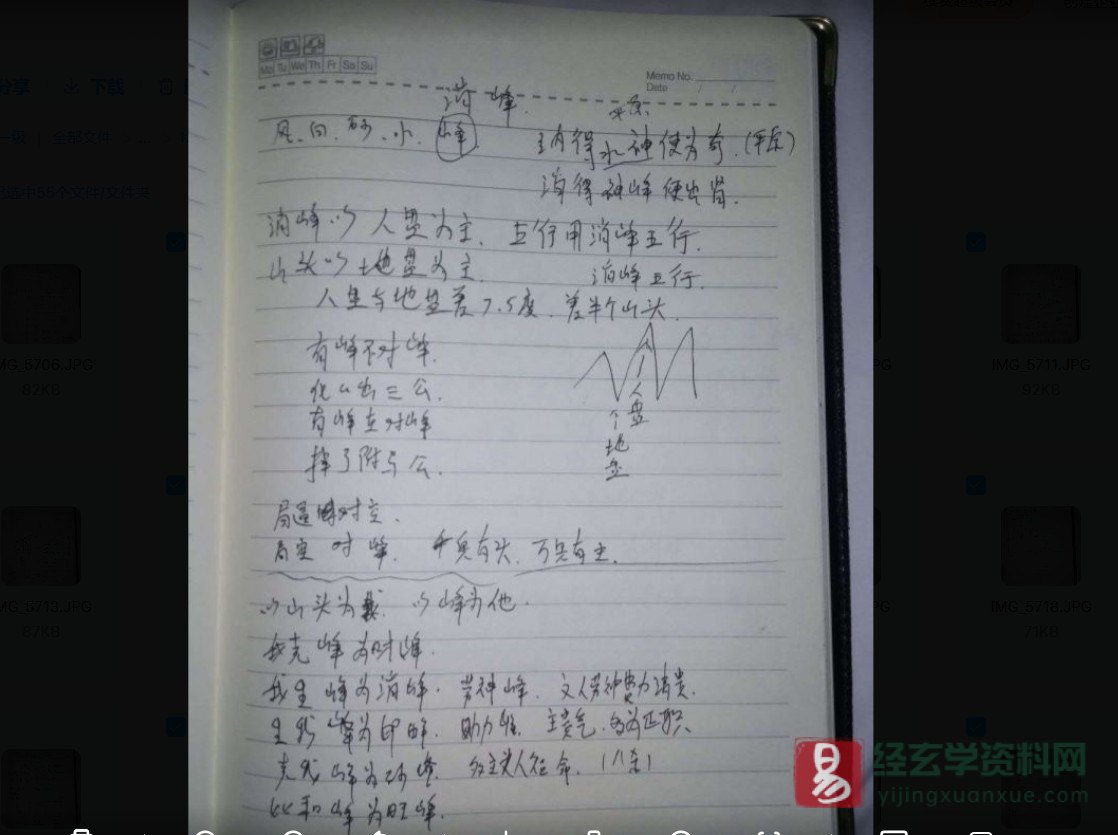 Mo Tu We Th Fr Sa Su
Memo No.
Date / /
消峰.
风、向、砂、水、峰
消得水神便为奇.
消得神峰便出官.
消峰以人盘为主. 五行用消峰五行.
山头以地盘为主.
消峰五行.
人盘与地盘差7.5度. 差半个山头.
有峰不对峰.
出三公.
有峰去对峰
人盘
地盘
局 对空.
局空对峰. 千兵有头. 万兵有主.
以山头为我. 以峰为他.
我克峰为财峰.
我生峰为消峰. 劳神峰. 文人劳神费力清贵.
生我峰为印峰. 助力峰. 主贵气. 多为正职.
克我峰为 . 多主人短命.
比和峰为旺峰.
易
经玄学资料网
yijingxuanxue.com
下载
全部文件
IMG_5706.JPG
82KB
IMG_5711.JPG
92KB
IMG_5713.JPG
87KB
IMG_5718.JPG
71KB